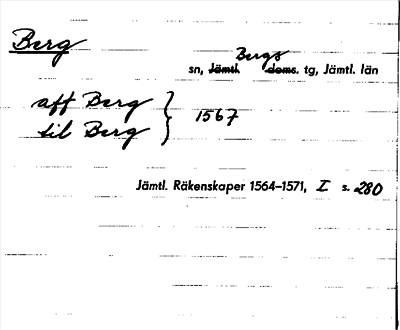 Berg
Bergs
sn, Jämtl. doms. tg, Jämtl. län
aff Berg } 1567
til Berg
Jämtl. Räkenskaper 1564–1571, I s. 280